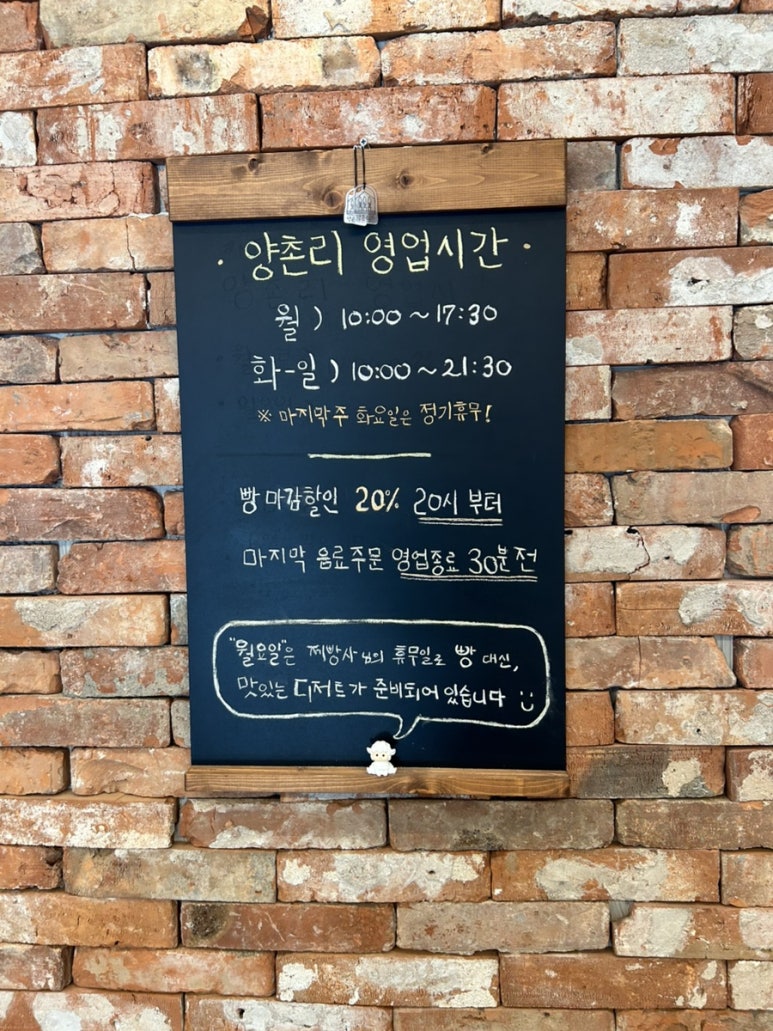 · 양촌리 영업시간 ·
월 ) 10:00 ~ 17:30
화-일 ) 10:00 ~ 21:30
※ 마지막주 화요일은 정기휴무!
빵 마감할인 20% 20시 부터
마지막 음료주문 영업종료 30분 전
"월요일"은 제빵사님의 휴무일로 빵 대신,
맛있는 디저트가 준비되어 있습니다 :)